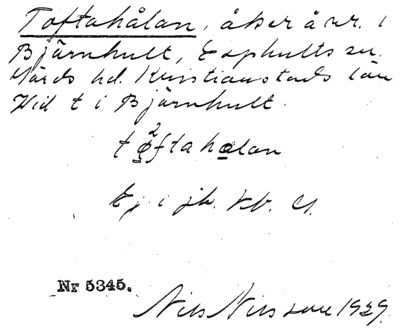 Toftahålan, åker å nr. 1
Björnhult, Esphults sn.
Gärds hd. Kristianstads län
Vid t i Björnhult.
tǫ²ftahalan
Ej i jb. Kb. U.
Nr 5345.
Nils Nilsson 1929.